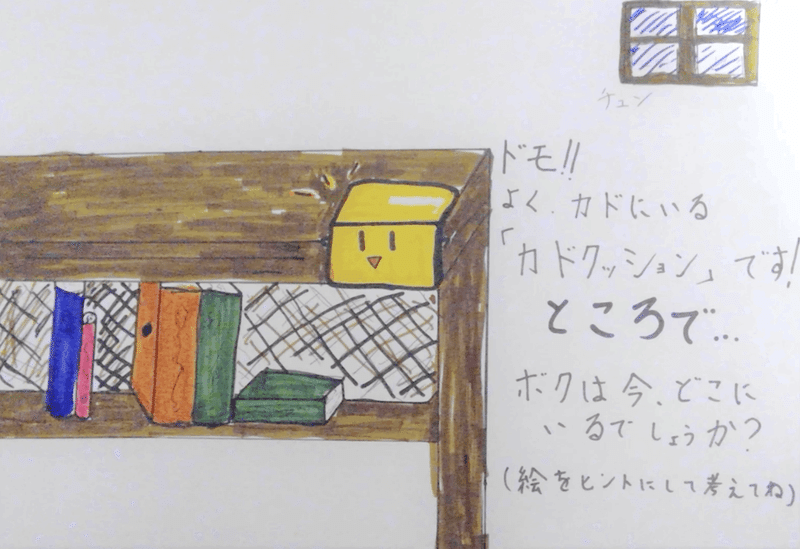 チュン
ドモ!!
よく、カドにいる
「カドクッション」です!
ところで…
ボクは今、どこに
いるでしょうか?
(絵をヒントにして考えてね)